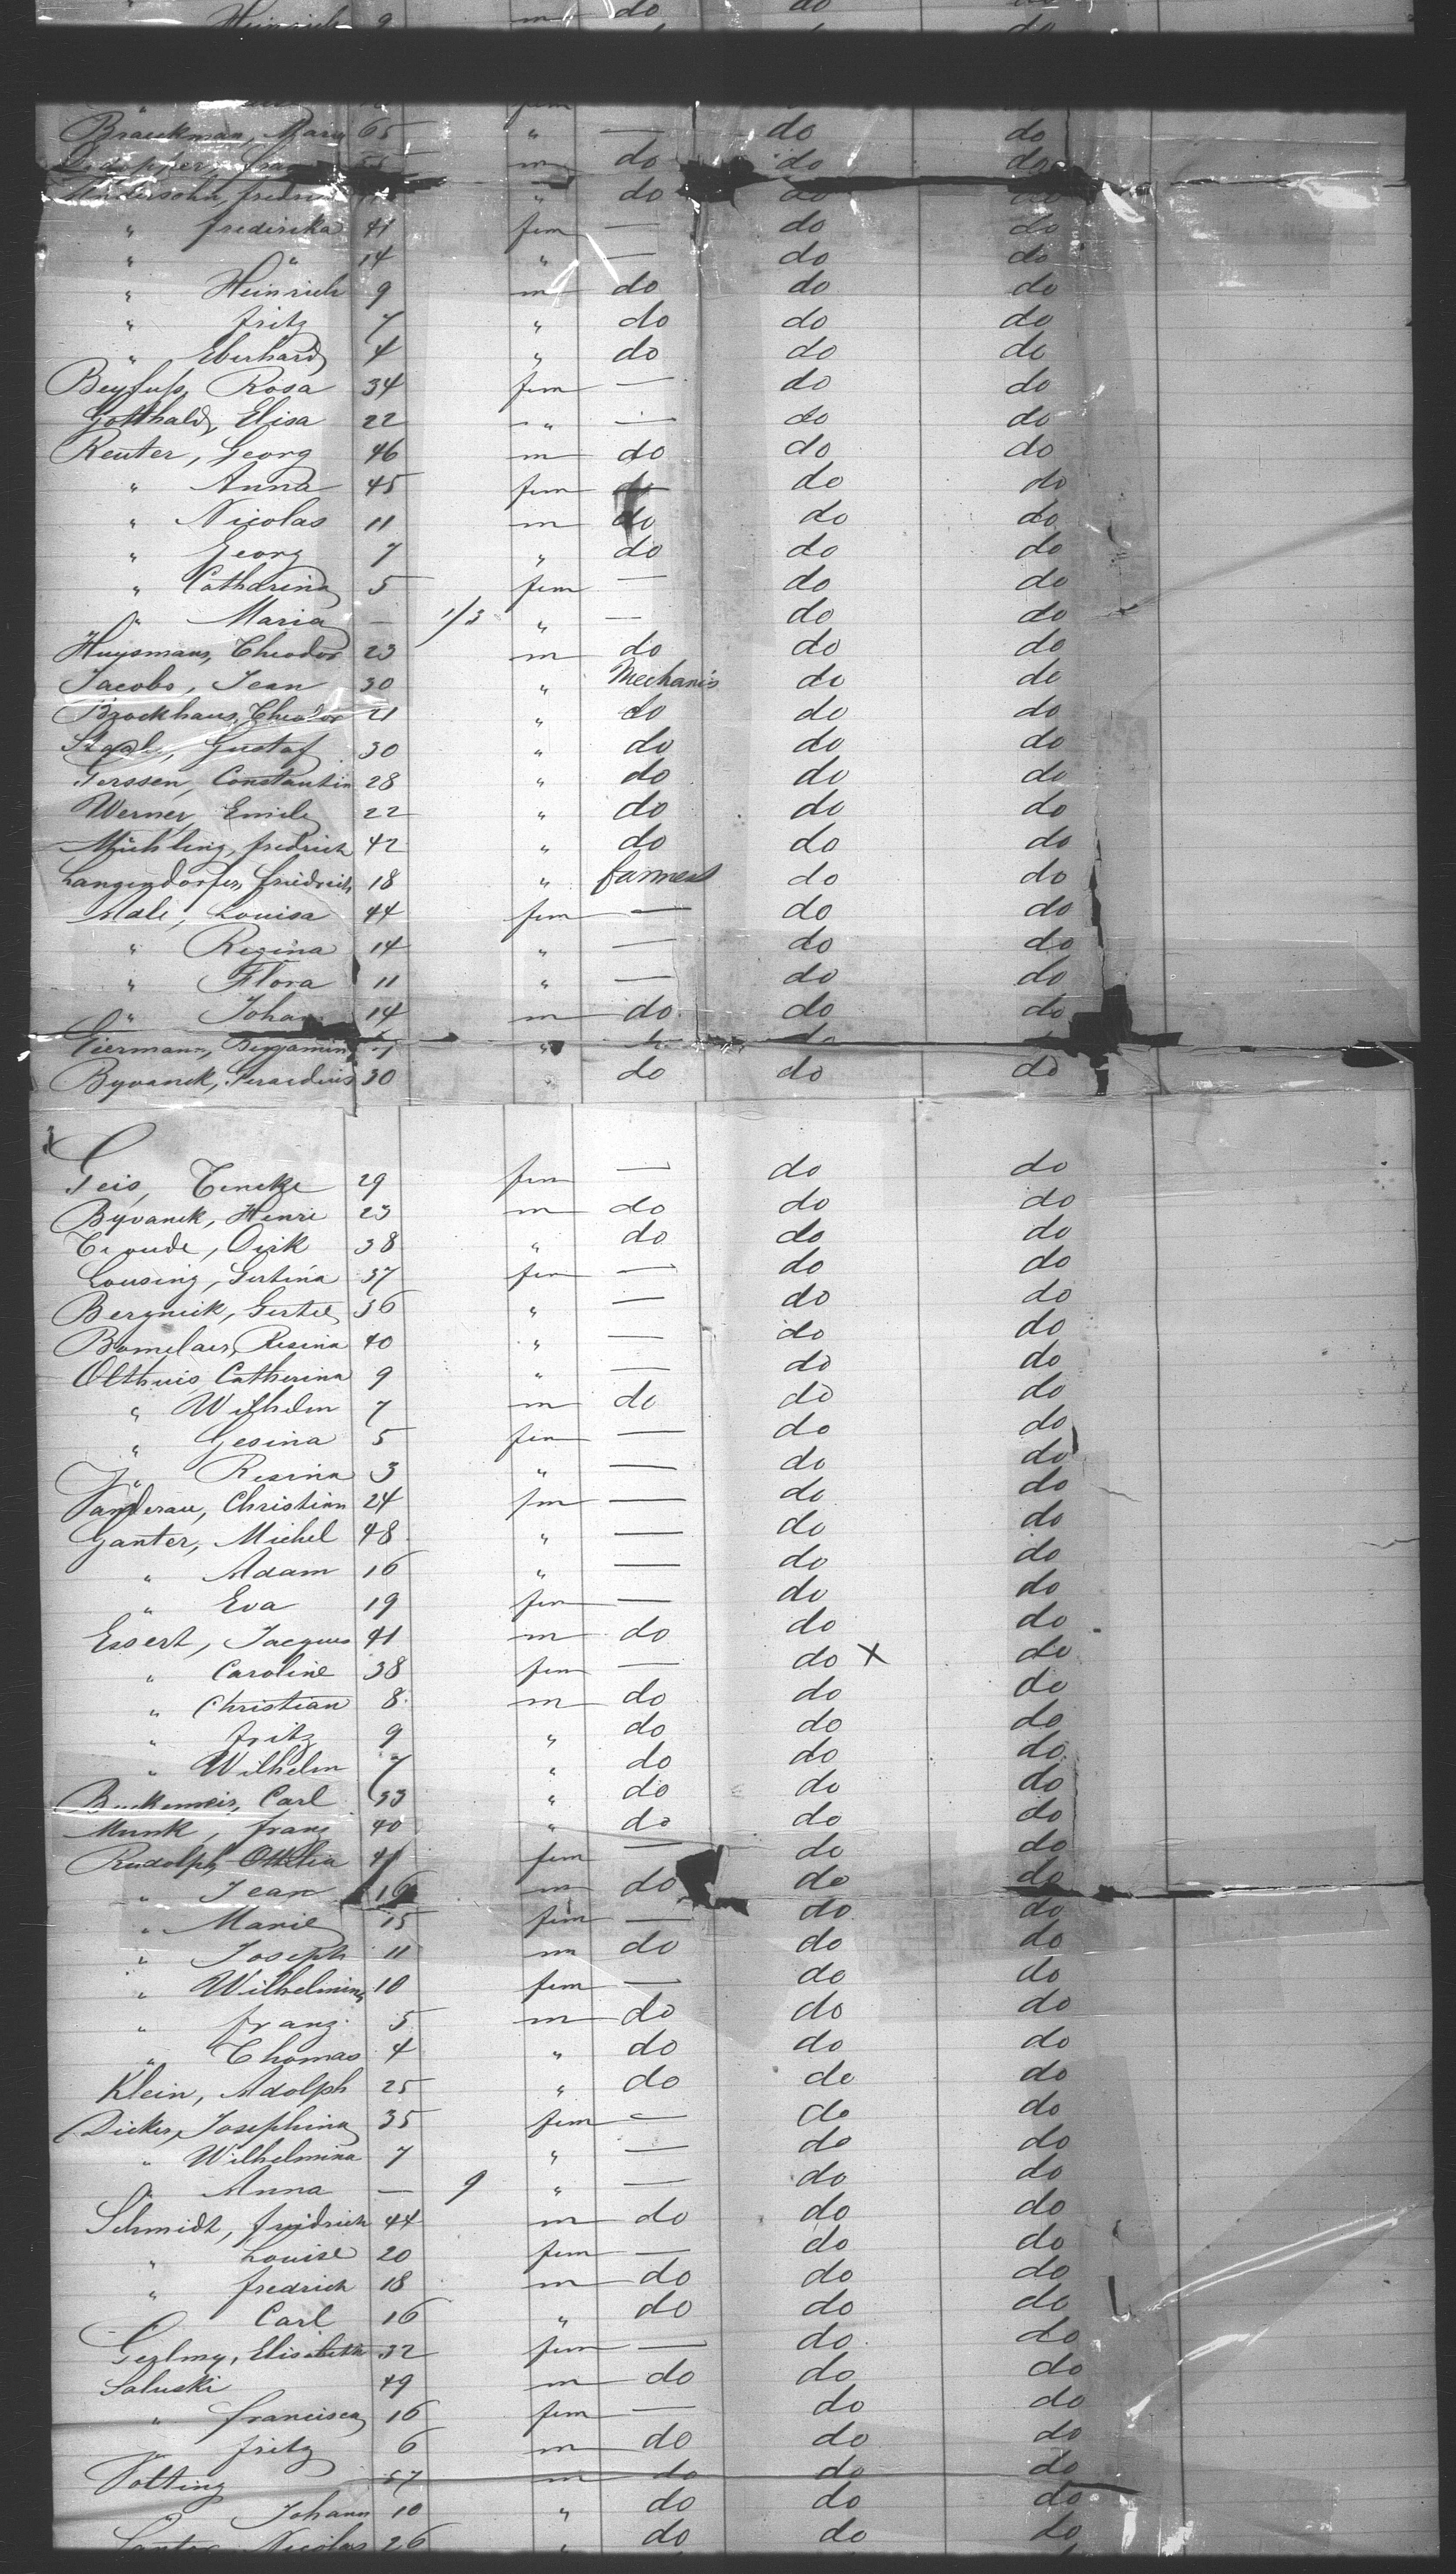 Heinrich 9 m do do do
fem
Braukman, Marie 65 " — do do
55 m do do do
fredri " do do do
" frederika 41 fem — do do
" " 14 " — do do
" Heinrich 9 m do do do
" fritz 7 " do do do
" Eberhard 4 " do do do
Beyfuss, Rosa 34 fem — do do
Gotthald, Elisa 22 " — do do
Reuter, Georg 46 m do do do
" Anna 45 fem do do do
" Nicolas 11 m do do do
" Georg 7 " do do do
" Catharina 5 fem — do do
" Maria — 1/3 " — do do
Huysmans, Theodor 23 m do do do
Jacobs, Jean 30 " Mechanis do do
Brockhaus, Theodor 21 " do do do
Gustaf 30 " do do do
Gerssen, Constantin 28 " do do do
Werner, Emile 22 " do do do
Mühling, fredrich 42 " do do do
Langendorfer, friedrich 18 " farmers do do
Mali, Louisa 44 fem — do do
" Regina 14 " — do do
" Flora 11 " — do do
" Johan 14 m do do do
Giermann, Benjamin " do
Byvanck, Gerardius 30 do do do
Geis, Teneke 29 fem — do do
Byvanck, Henri 23 m do do do
Dirk 38 " do do do
Lousing, Gertina 37 fem — do do
Bergneik, Gertie 36 " — do do
Bomelaer, Resina 40 " — do do
Olthuis, Catherina 9 " — do do
" Wilhelm 7 m do do do
" Gesina 5 fem — do do
" Resina 3 " — do do
Christian 24 fm — do do
Ganter, Michel 48 " — do do
" Adam 16 " — do do
" Eva 19 fem — do do
Essert, Jacques 41 m do do do
" Caroline 38 fem — do X do
" Christian 8 m do do do
" fritz 9 " do do do
" Wilhelm 7 " do do do
Buckemeir, Carl 33 " do do do
Munk, franz 40 " do do do
Rudolph, Ottilia 41 fem — do do
" Jean 16 m do do do
" Marie 15 fem — do do
" Joseph 11 m do do do
" Wilhelmina 10 fem — do do
" franz 5 m do do do
" Thomas 4 " do do do
Klein, Adolph 25 " do do do
Dicker, Josephina 35 fem — do do
" Wilhelmina 7 " — do do
" Anna — 9 " — do do
Schmidt, friedrich 44 m do do do
" Louise 20 fem — do do
" fredrich 18 m do do do
Carl 16 " do do do
Elisabeth 32 fem — do do
Saluski 49 m do do do
" francisca 16 fem — do do
fritz 6 m do do do
Volting 57 m do do do
" Johann 10 " do do do
Nicolas 26 " do do do